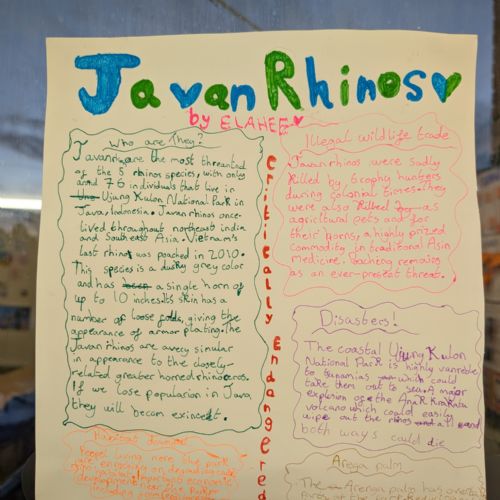 Javan Rhinos
by ELAHEE
Who are They?
Javan are the most threanted
of the 5 rhinos species, with only
76 individuals that live in
Ujung Kulon National Park in
Java, Indonesia. Javan rhinos once
lived throughout northeast india
and Southeast Asia. Vietnam's
last rhino was poached in 2010.
This species is a dusky grey color
and has a single horn of
up to 10 inches. Its skin has a
number of loose folds, giving the
appearance of armor plating. The
Javan rhinos are a very similar
in appearance to the closely-
related greater horned rhinoceros.
If we lose population in Java,
they will becom extincet.
Critically Endangered
Illegal wildlife trade
Javan rhinos were sadly
killed by trophy hunters
during colonial times. They
were also killed as
agricltural pets and for
their horns, a highly prized
commodity in traditional Asin
Medicine. Poaching remains
as an ever-present threat.
Disasters!
The coastal Ujung Kulon
National Park is highly
to tsunamis which could
take them out to sea. A major
explosion of the Anak Krakatu
volcano which could easily
wipe out the rhinos and
both ways could die
Habitat
Peopel living nere the park
economic
development near the
including
Arenga palm
The Arengan palm has